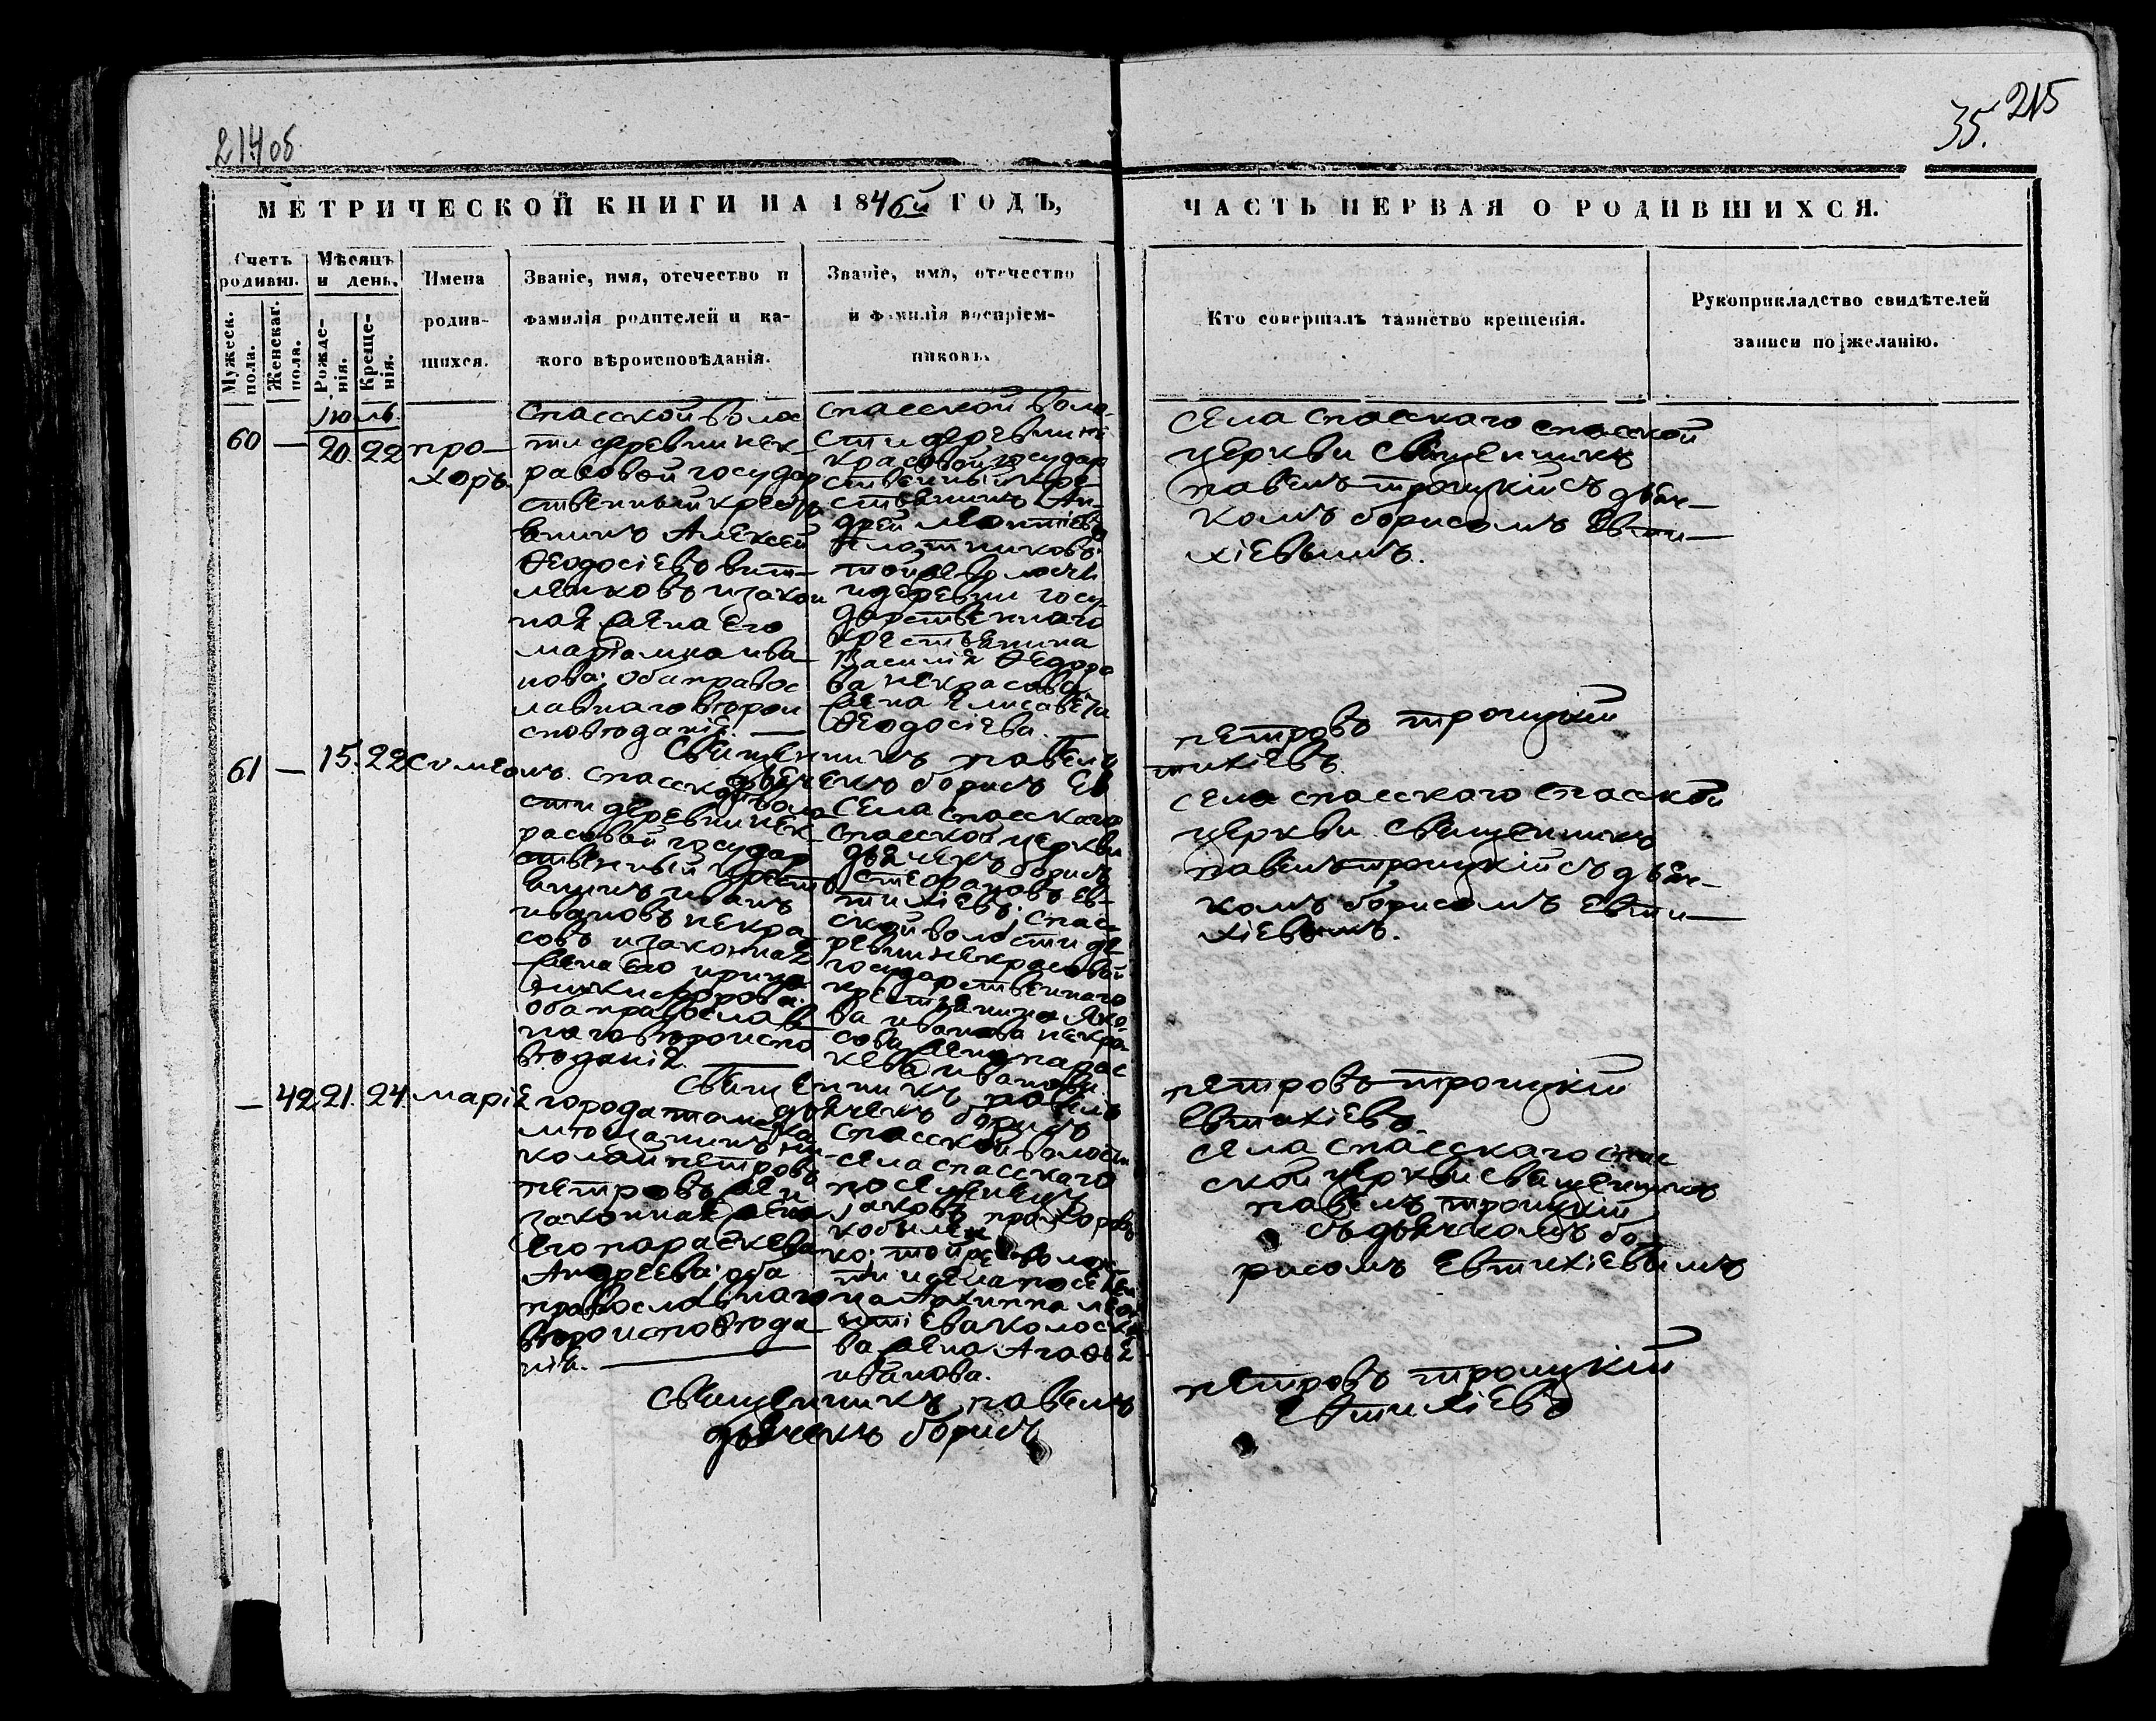 214 об
35. 215
МЕТРИЧЕСКОЙ КНИГИ НА 1846й ГОДЪ,
ЧАСТЬ ПЕРВАЯ О РОДИВШИХСЯ.
Счетъ родивш.
Мужеск. пола.
Женскаг. пола.
Мѣсяцъ и день.
Рожденія.
Крещенія.
Имена
родив-
шихся.
Званіе, имя, отечество и
фамилія родителей и ка-
кого вѣроисповѣданія.
Званіе, имя, отечество
и фамилія воспріем-
никовъ.
Кто совершалъ таинство крещенія.
Рукоприкладство свидѣтелей
записи по желанію.
Іюль
60 — 20. 22
про-
хоръ
спасской волос
ти деревни нек
расовой государ
ственный кресть
янинъ Алексей
Ѳеодосіевъ
и закон
ная жена его
маріамна ива
нова; оба правос
лавнаго вѣрои
сповѣданія. —
спасской воло-
сти деревни не
красовой государ
ственный кре-
стьянинъ Ан-
дрей Леонтіевъ
плотниковъ;
той же волости
и деревни госу-
дарственнаго
крестьянина
Василія Ѳедоро
ва некрасова
жена Елисавета
Ѳеодосіева. —
села спасскаго спасской
церкви священникъ
павелъ троицкій съ дьяч-
комъ борисомъ Евти-
хіевымъ.
священникъ павелъ петровъ троицкій
дьячекъ борисъ Ев тихіевъ
61 — 15. 22 симеонъ.
спасской воло
сти деревни нек
расовой государ
ственный кресть
янинъ иванъ
ивановъ некра
совъ и законная
жена его ирина
никифорова:
оба православ
наго вѣроиспо
вѣданія. —
села спасскаго
спасской церкви
дьячекъ борисъ
стефановъ ев-
тихіевъ; спас-
ской волости де-
ревни некрасовой
государственнаго
крестьянина Яко-
ва иванова некра
сова жена парас
кева иванова
села спасскаго спасской
церкви священникъ
павелъ троицкій съ дьяч-
комъ борисомъ Евти-
хіевымъ.
священникъ павелъ петровъ троицкій
дьячекъ борисъ Евтихіевъ
— 42 21. 24. маріѣ
города томска
мѣщанинъ ни
колай петровъ
петровъ же и
законная жена
его параскева
Андреева; оба
православнаго
вѣроисповѣда
нія. —
спасской волости
села спасскаго
поселенецъ
іаковъ прохоровъ
той же волос-
ти и села поселен
ца Архиппа леон
тіева
ва жена Агаѳья
иванова.
села спасскаго спас
ской церкви священникъ
павелъ троицкій
съ дьячкомъ бо-
рисомъ Евтихіевымъ
священникъ павелъ петровъ троицкій
дьячекъ борисъ Евтихіевъ